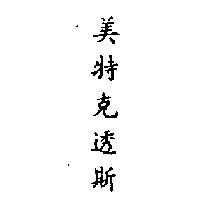 美特克透斯